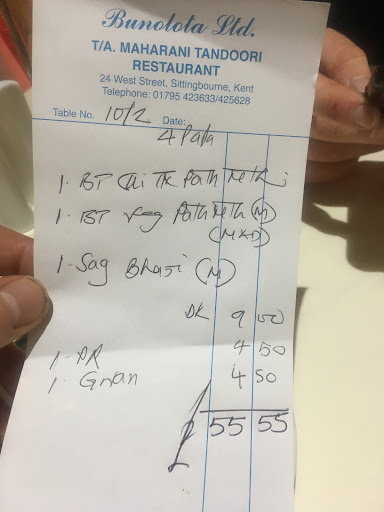 Bunolota Ltd.
T/A. MAHARANI TANDOORI
RESTAURANT
24 West Street, Sittingbourne, Kent
Telephone: 01795 423633/425628
Table No. 10/2 Date:
4 Papa
1. BT Methi
1. BT veg Path Meth (M)
(MXD)
1. Sag Bhaji (M)
DK 9 00
1. PR 4 50
1. Gnan 4 50
£ 55 55